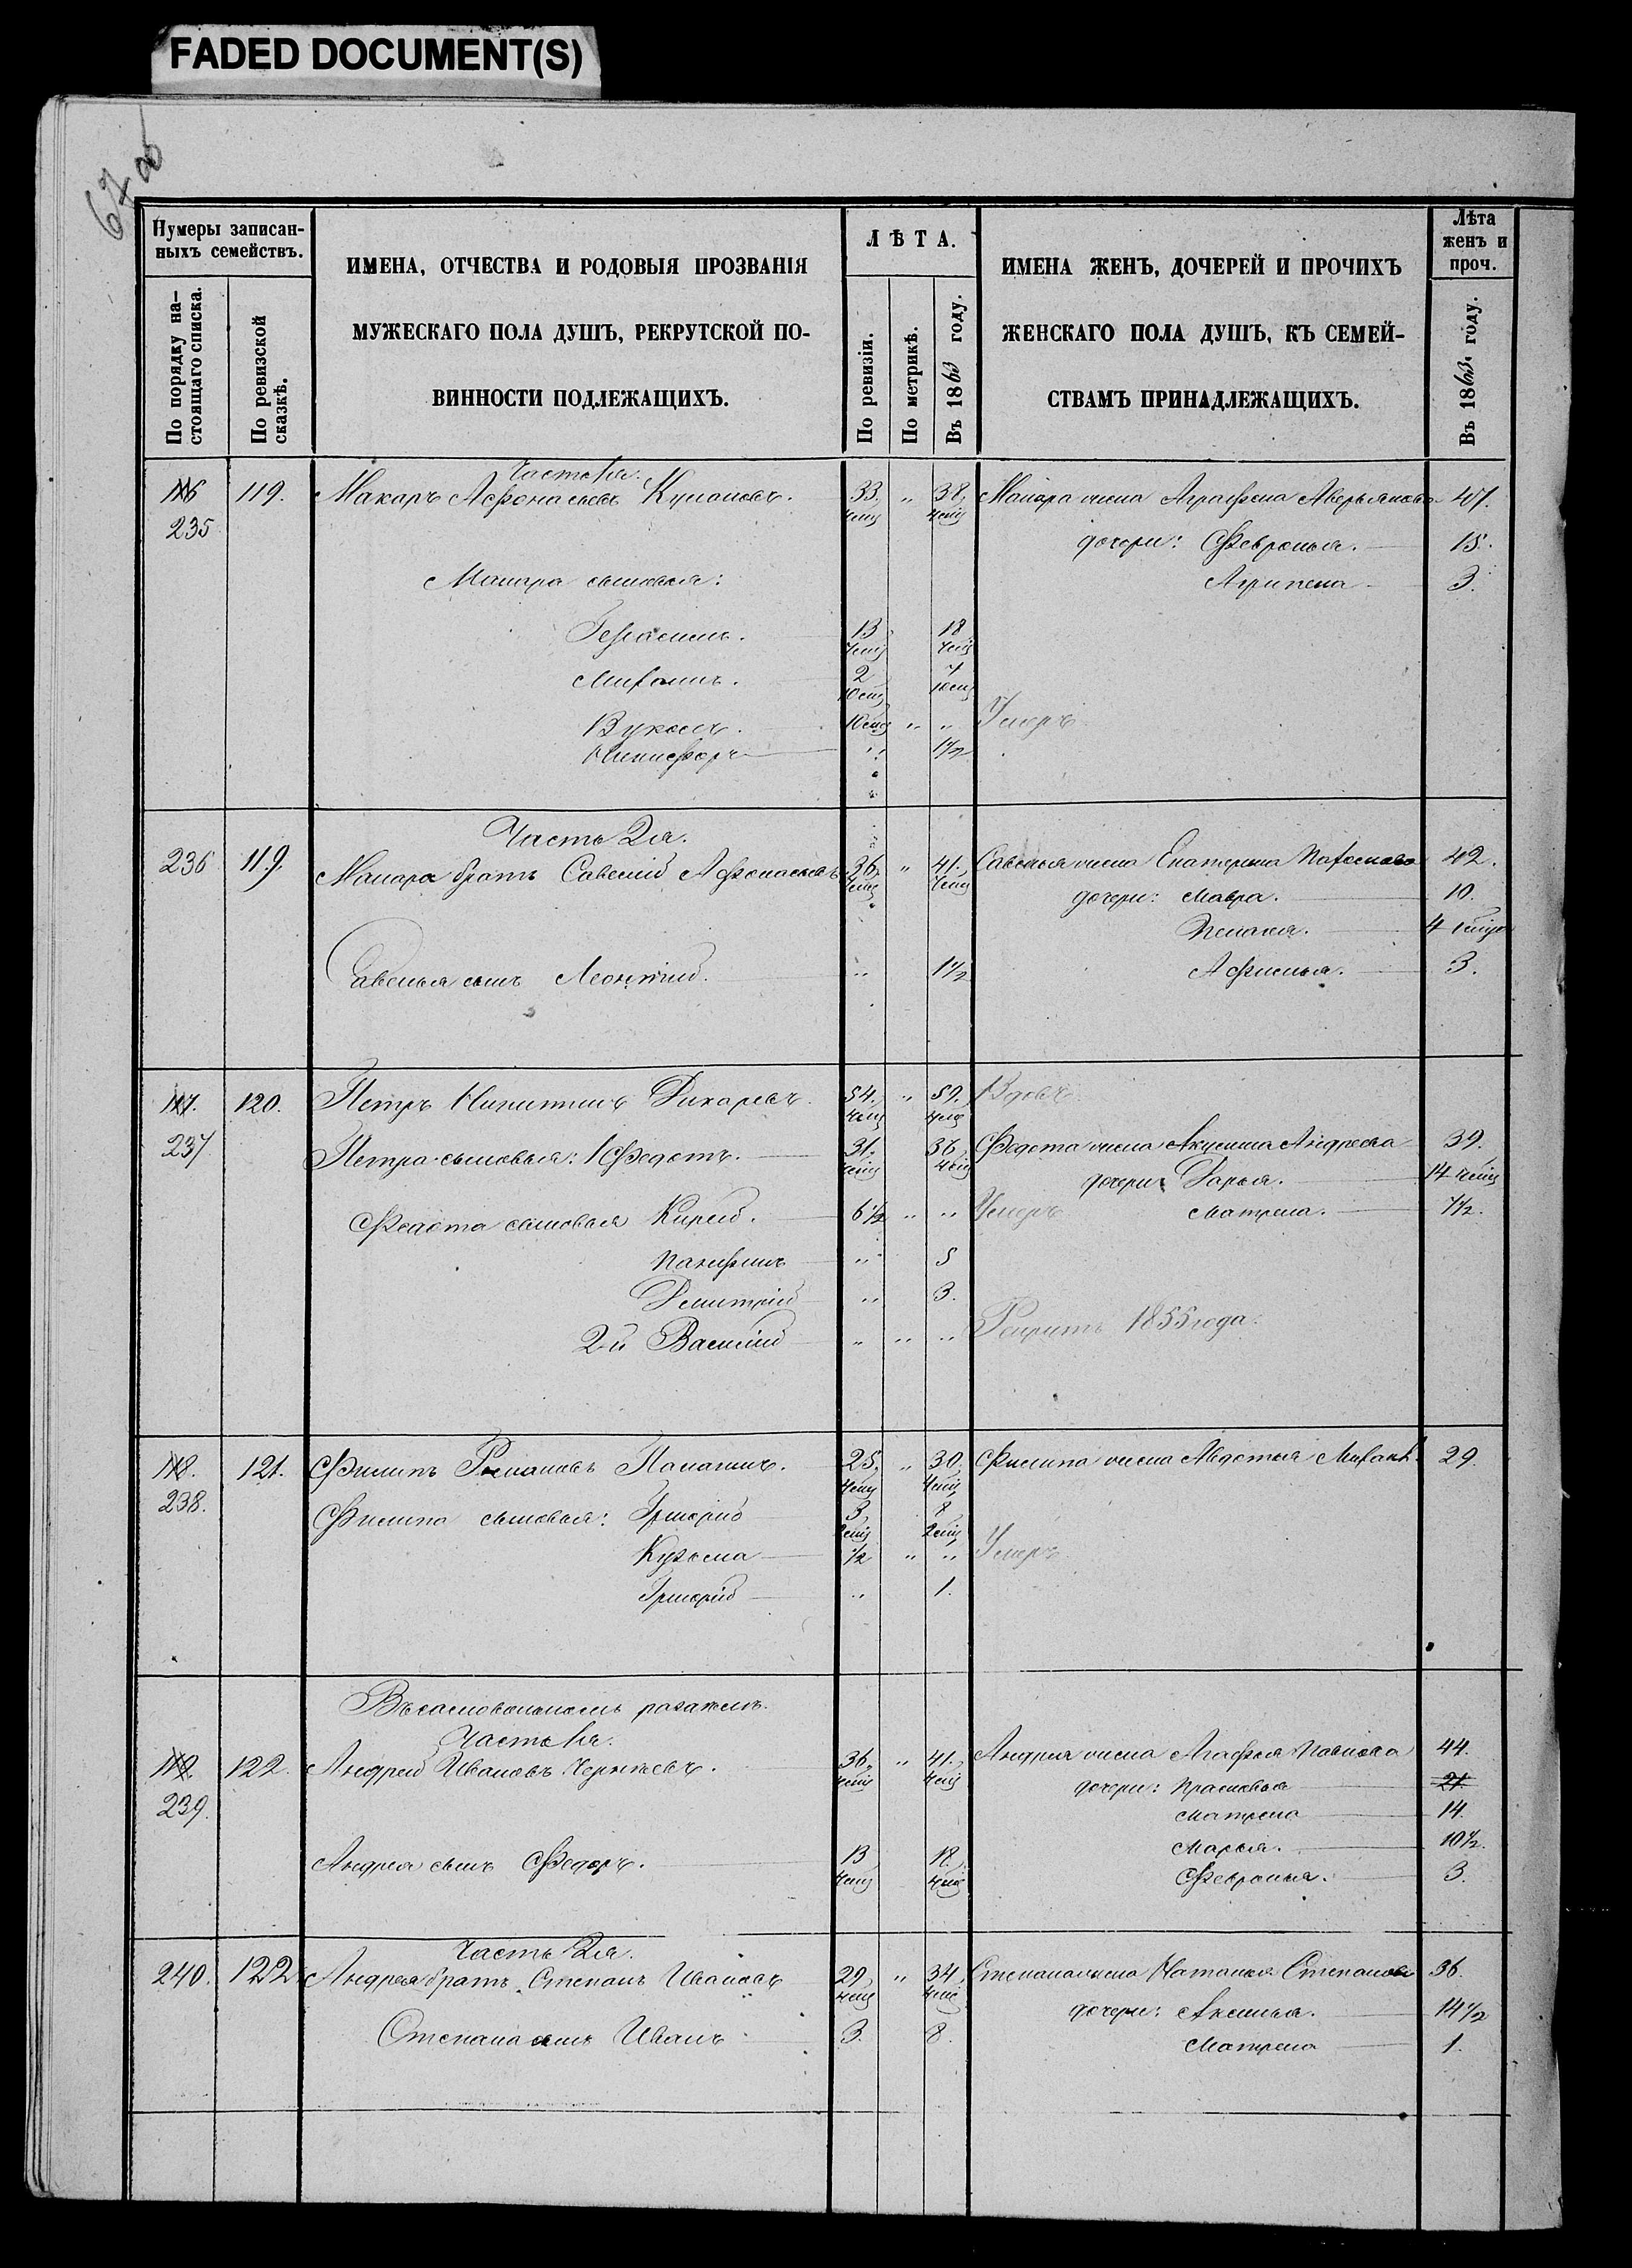 FADED DOCUMENT(S)
67 об
Нумеры записан-
ныхъ семействъ.
По порядку на-
стоящаго списка.
По ревизской
сказкѣ.
ИМЕНА, ОТЧЕСТВА И РОДОВЫЯ ПРОЗВАНІЯ
МУЖЕСКАГО ПОЛА ДУШЪ, РЕКРУТСКОЙ ПО-
ВИННОСТИ ПОДЛЕЖАЩИХЪ.
ЛѢТА.
По ревизіи.
По метрикѣ.
Въ 1863 году.
ИМЕНА ЖЕНЪ, ДОЧЕРЕЙ И ПРОЧИХЪ
ЖЕНСКАГО ПОЛА ДУШЪ, КЪ СЕМЕЙ-
СТВАМЪ ПРИНАДЛЕЖАЩИХЪ.
Лѣта
женъ и
проч.
Въ 1863 году.
Часть 1я.
116 119. Макаръ Афонасьевъ 33. " 38. Макара жена Аграфена Аверьянова 47.
235 дочери: Февронья. 15.
Макара сыновья: Агрипена 3.
Герасимъ. 13 18
Михаилъ. 2 7
Вуколъ. " " Умеръ
Никифоръ " 1 1/2
Часть 2я.
236 119. Макара братъ Савелій Афонасьевъ 36. " 41. Савелья жена Екатерина 42.
дочери: Мавра. 10.
Пелагея. 4
Савелья сынъ Леонтий. " 1 1/2 Афимья. 3.
117. 120. Петръ Никитинъ Дихаревъ 54. " 59. Вдовъ
237 Петра сыновья: 1 Федотъ. 31. 36. Федота жена Акулина Андреева 39.
дочери Дарья. 14
Федота сыновья Кирей. 6 1/2 " " Умеръ Матрена. 7 1/2.
Панфилъ " 5
Дмитрій " 3.
2й Василій " " " Рекрутъ 1855 года.
118. 121. Филипъ Романовъ 25. " 30. Филипа жена Авдотья Михайл. 29.
238. Филипа сыновья: Григорій 3 8
Кузьма 1/2 " " Умеръ
Григорій " 1.
Въ самовольномъ разделе.
Часть 1я.
119. 122. Андрей Ивановъ 36. " 41. Андрея жена Агафья Павлова 44.
239. дочери: Прасковья 21.
Матрена 14.
Марья. 10 1/2.
Андрея сынъ Федоръ. 13 18. Февронья. 3.
Часть 2я.
240. 122 Андрея братъ Степанъ Ивановъ 29. " 34. Степана жена Наталья Степанова 36.
дочери: Аксинья. 14 1/2
Степана сынъ Иванъ 3. 8. Матрена 1.